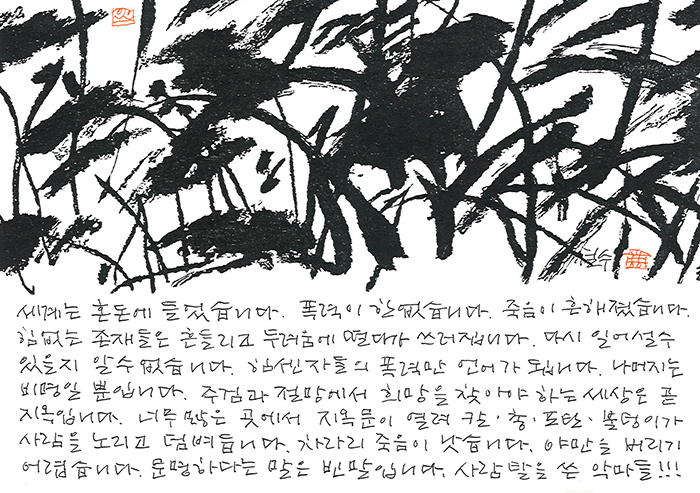 철수
세계는 혼돈에 들었습니다. 폭력이 한없습니다. 죽음이 흔해졌습니다.
힘없는 존재들은 흔들리고 두려움에 떨다가 쓰러집니다. 다시 일어설 수
있을지 알 수 없습니다. 힘센자들의 폭력만 언어가 됩니다. 나머지는
비명일 뿐입니다. 주검과 절망에서 희망을 찾아야 하는 세상은 곧
지옥입니다. 너무 많은 곳에서 지옥문이 열려 칼·총·포탄·불덩이가
사람을 노리고 덤벼듭니다. 차라리 죽음이 낫습니다. 야만을 버리기
어렵습니다. 문명하다는 말은 빈말입니다. 사람 탈을 쓴 악마들!!!